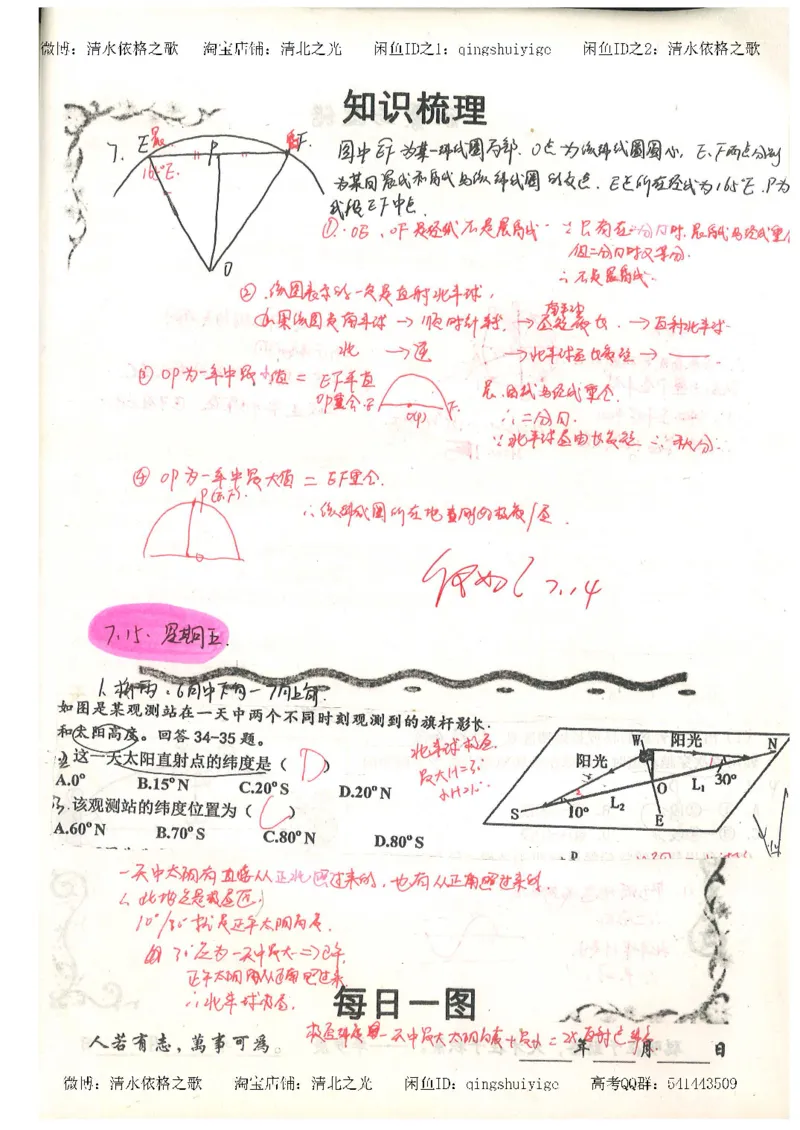 微博：清水依格之歌 淘宝店铺：清北之光 闲鱼ID之1：qingshuiyige 闲鱼ID之2：清水依格之歌
知识梳理
7.
E
P
F
165°E.
O
图中EF为某一纬线圈局部．O点为该纬线圈圆心，E、F两点分别
为某同晨线和昏线与该纬线圈的交点．E点所在经线为165°E．P为
线段EF中点．
①．OE、OF是经线不是晨昏线
∵只有在二分日时，晨昏线与经线重合
但二分日时又等分．
∴不是晨昏线．
②．该图表示的一定是直射北半球，
南半球
如果该图是南半球→顺时针转→昼短夜长．→直射北半球
北 →逆 →北半球昼长夜短→
③OP为一年中最小值＝EF平直
OP重合
O(P)
F
晨昏线与经线重合
∴二分日．
∵北半球昼由长变短∴秋分．
④OP为一年中最大值＝EF重合．
P(E.F)．
O
∴该纬线圈所在地刚好极夜/昼．
7.14
7.15．星期五．
1. 6月中下旬一7月上旬．
如图是某观测站在一天中两个不同时刻观测到的旗杆影长
和太阳高度。回答34-35题。
这一天太阳直射点的纬度是（D）
A.0° B.15°N C.20°S D.20°N
该观测站的纬度位置为（C）
A.60°N B.70°S C.80°N D.80°S
北半球极昼
最大H=30°
小H=10°
W
阳光
N
阳光
O
L₁
30°
S
10°
L₂
E
一天中太阳有直接从正北照过来的，也有从正南照过来的
∴此地定是极昼区．
10°/30°都是正午太阳高度．
30°应为一天中最大⇒正午
正午太阳从正南照过来
∴北半球极昼．
每日一图
人若有志，萬事可為。
极昼纬度 一天中最大太阳高度＋最小＝2×直射点纬度
年 月 日
微博：清水依格之歌 淘宝店铺：清北之光 闲鱼ID：qingshuiyige 高考QQ群：541443509